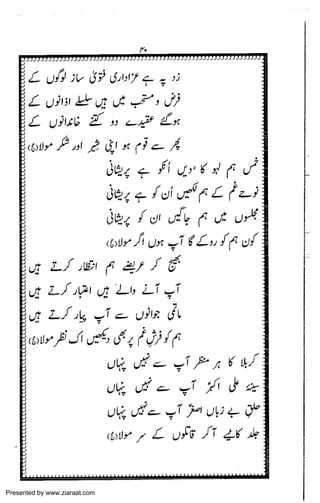 ۴۰
زد پہ عزاداری ہے فتویٰ ساز لوگوں کے
فرض و مستحب میں ہیں سلسلے اذانوں کے
ہوگئے عقیدے دو کتنے خاندانوں کے
پھر سے قوم ہو اپنی شیر اور شکر مولا(عج)
خمس ہم لہو کا دیں انکو ہے پریشانی
نوحے غم کے ہم لکھیں اُن کو ہے پریشانی
مجلسوں میں ہم جائیں ان کو پریشانی
کون ہم کو روکے گا آپ ہوں اگر مولا(عج)
بھیج کر عریضے ہم انتظار کرتے ہیں
آپ آنے والے ہیں اعتبار کرتے ہیں
ماتمی جوانوں سے آپ پیار کرتے ہیں
ہم کو فرشِ غم پر بھی دیکھیں اک نظر مولا(عج)
کربلا کا ہر منظر آپ سے نہیں پنہاں
سینۂ علی اکبرؑ آپ سے نہیں پنہاں
حلقِ بے زباں اصغرؑ آپ سے نہیں پنہاں
جلد کاٹیے آکر قاتلوں کے سر مولا(عج)
Presented by www.ziaraat.com